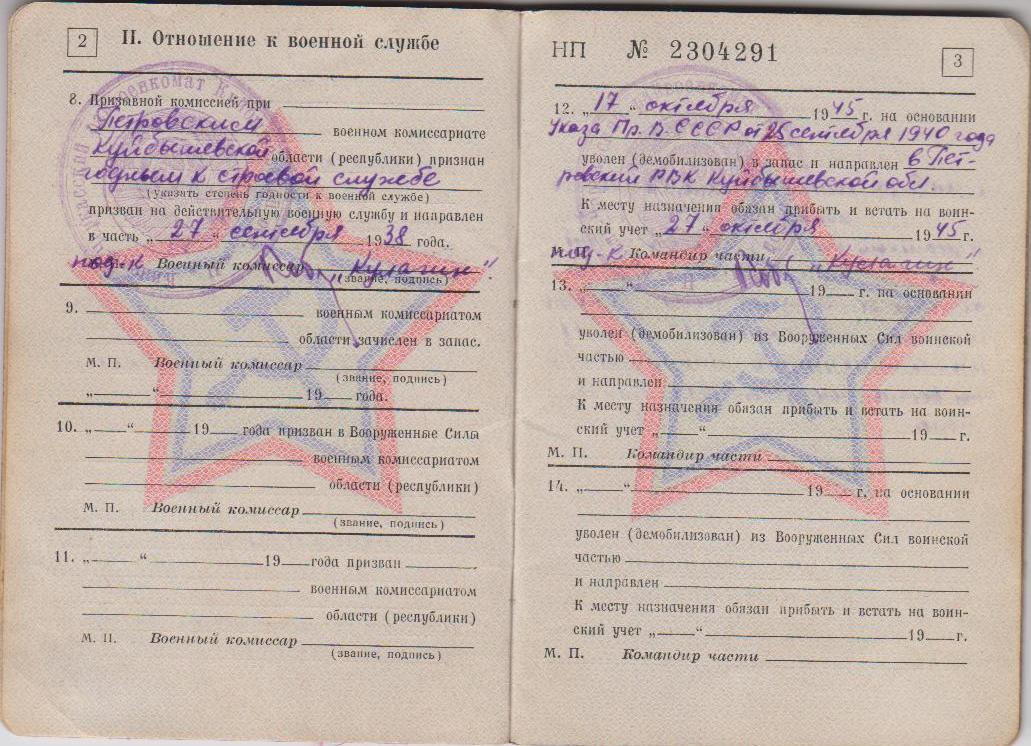 2 II. Отношение к военной службе
8. Призывной комиссией при
Петровским военном комиссариате
Куйбышевской области (республики) признан
годным к строевой службе
(указать степень годности к военной службе)
призван на действительную военную службу и направлен
в часть „27“ сентября 1938 года.
Военный комиссар „Кулагин“
(звание, подпись)
9. военным комиссариатом
области зачислен в запас.
М. П. Военный комиссар
(звание, подпись)
„ “ 19 года.
10. „ “ 19 года призван в Вооруженные Силы
военным комиссариатом
области (республики)
М. П. Военный комиссар
(звание, подпись)
11. „ “ 19 года призван
военным комиссариатом
области (республики)
М. П. Военный комиссар
(звание, подпись)
НП № 2304291 3
12. „17“ октября 1945 г. на основании
Указа Пр. В. СССР от 25 сентября 1940 года
уволен (демобилизован) в запас и направлен в Пет-
ровский РВК Куйбышевской обл.
К месту назначения обязан прибыть и встать на воин-
ский учет „27“ октября 1945 г.
Командир части „Кулагин“
13. „ “ 19 г. на основании
уволен (демобилизован) из Вооруженных Сил воинской
частью
и направлен
К месту назначения обязан прибыть и встать на воин-
ский учет „ “ 19 г.
М. П. Командир части
14. „ “ 19 г. на основании
уволен (демобилизован) из Вооруженных Сил воинской
частью
и направлен
К месту назначения обязан прибыть и встать на воин-
ский учет „ “ 19 г.
М. П. Командир части